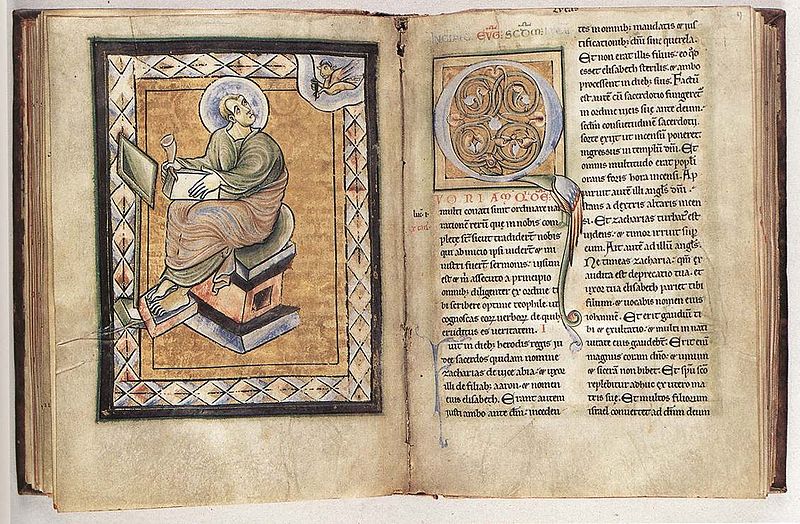 EVG̅ SCD̅M LVCA
Q
VONIAM QVIDE̅
multi conati sunt ordinare nar
ratione̅ reru̅ que in nobis com
plete st̅ sicut tradider̅t nobis
qui ab inicio ipsi uider̅t & mi
nistri fuer̅t sermonis: uisum
est & m̅ assecuto a principio
omnib; diligenter ex ordine ti
bi scribere optime theophile, ut
cognoscas eoꝝ uerboꝝ de quib;
eruditus es ueritatem.
uit in dieb; herodis regis iu
dee sacerdos quidam nomine
zacharias de uice abia, & uxor
illi de filiab; aaron, & nomen
eius elisabeth. Erant autem
iusti ambo ante d̅m, inceden
tes in omnib; mandatis & ius
tificationib; d̅ni sine querela.
Et non erat illis filius, eo qd̅
esset elisabeth sterilis, & ambo
processent in dieb; suis. Factu̅
est aute̅ cu̅ sacerdotio fungeret̅
in ordine uicis sue ante deum,
scd̅m consuetudine̅ sacerdotii
sorte exiit ut incensu̅ poneret
ingressus in templu̅ d̅ni. Et
omnis multitudo erat popli
orans foris hora incensi. Ap
paruit aute̅ illi angl̅s d̅ni
stans a dextris altaris incen
si. Et zacharias turbat' est
uidens, & timor irruit sup
eum. Ait aute̅ ad illu̅ angl̅s.
Ne timeas zacharia: qm̅ ex
audita est deprecatio tua. et
uxor tua elisabeth pariet tibi
filium, & uocabis nomen eius
iohanne̅. Et erit gaudiu̅ ti
bi & exultatio, & multi in nati
uitate eius gaudeb̅t. Erit eni̅
magnus coram d̅no, & uinum
& sicera̅ non bibet. Et sp̅u sc̅o
replebitur adhuc ex utero ma
tris sue. Et multos filiorum
israel conuertet ad d̅nm deum